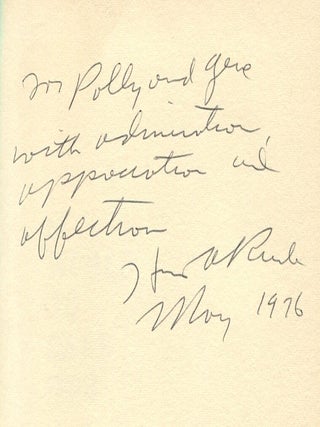 For Polly and Gene
with admiration,
appreciation and
affection
Howard A Rusk
May 1976